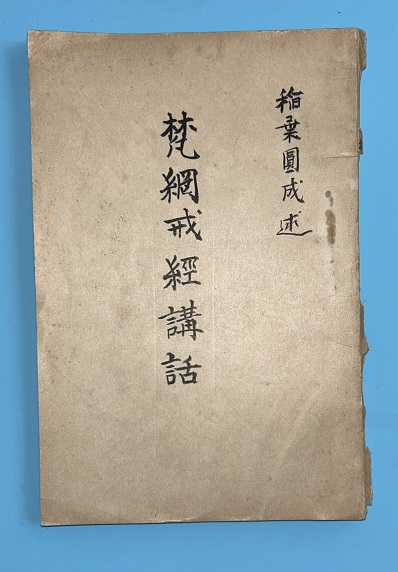 稲葉圓成述
梵網戒経講話